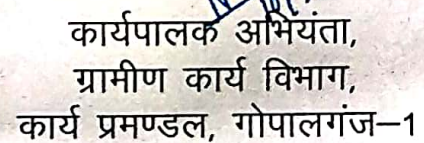 कार्यपालक अभियंता,
ग्रामीण कार्य विभाग,
कार्य प्रमण्डल, गोपालगंज–1